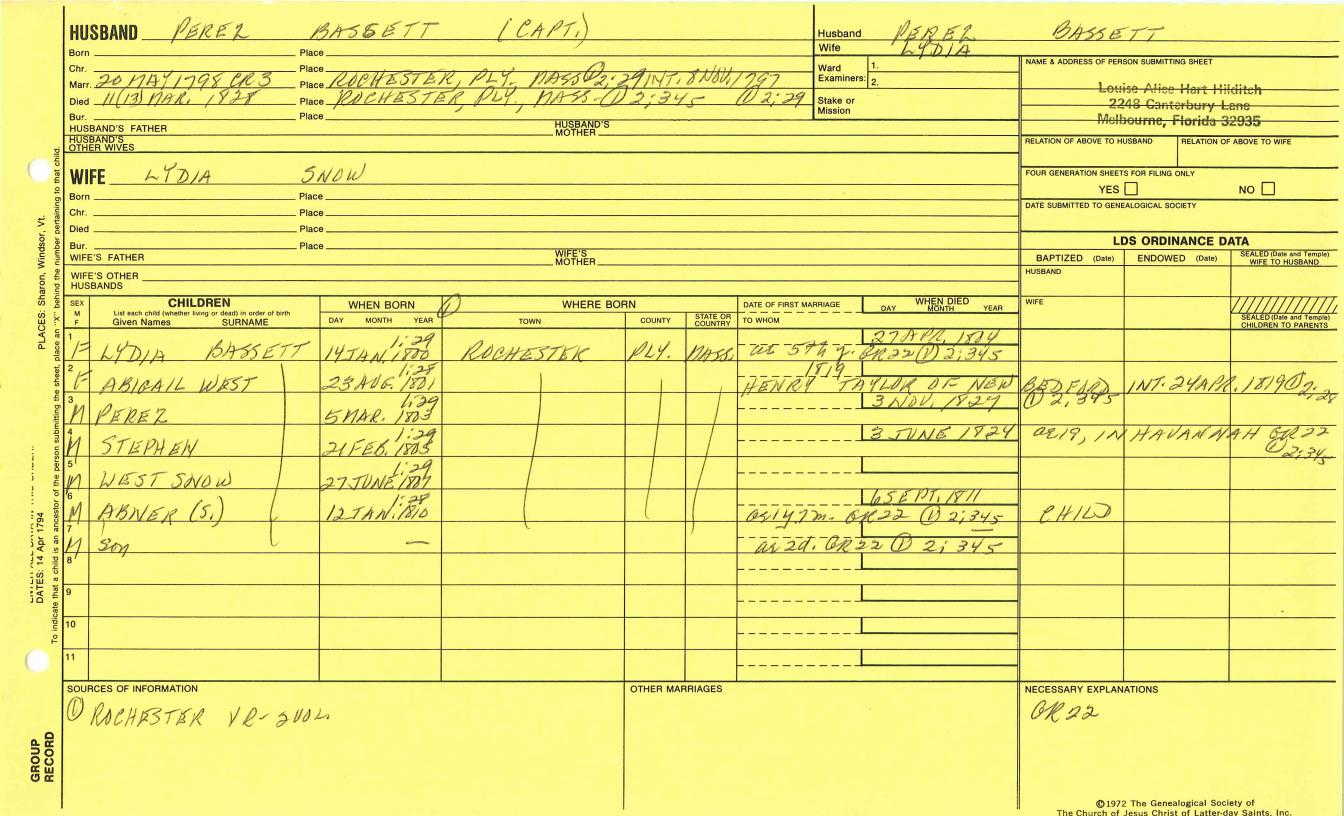 HUSBAND PEREZ BASSETT (CAPT.)
Born Place
Chr. Place
Marr. 20 MAY 1798 CR3 Place ROCHESTER, PLY. MASS ① 2:29, INT. 8 NOV, 1797
Died 11(13) MAR. 1828 Place ROCHESTER, PLY., MASS- ① 2:345 ① 2:29
Bur. Place
HUSBAND'S FATHER HUSBAND'S MOTHER
HUSBAND'S OTHER WIVES
Husband PEREZ BASSETT
Wife LYDIA
Ward Examiners: 1.
2.
Stake or Mission
NAME & ADDRESS OF PERSON SUBMITTING SHEET
Louise Alice Hart Hilditch
2248 Canterbury Lane
Melbourne, Florida 32935
RELATION OF ABOVE TO HUSBAND RELATION OF ABOVE TO WIFE
FOUR GENERATION SHEETS FOR FILING ONLY
YES NO
DATE SUBMITTED TO GENEALOGICAL SOCIETY
WIFE LYDIA SNOW
Born Place
Chr. Place
Died Place
Bur. Place
WIFE'S FATHER WIFE'S MOTHER
WIFE'S OTHER HUSBANDS
LDS ORDINANCE DATA
BAPTIZED (Date) ENDOWED (Date) SEALED (Date and Temple) WIFE TO HUSBAND
HUSBAND
WIFE
SEALED (Date and Temple) CHILDREN TO PARENTS
SEX M F CHILDREN WHEN BORN ① WHERE BORN DATE OF FIRST MARRIAGE WHEN DIED
List each child (whether living or dead) in order of birth
Given Names SURNAME DAY MONTH YEAR TOWN COUNTY STATE OR COUNTRY TO WHOM DAY MONTH YEAR
1 1:29 27 APR. 1804
F LYDIA BASSETT 14 JAN. 1800 ROCHESTER PLY. MASS. ae 5th y. GR22 ① 2:345
2 1:28 1819
F ABIGAIL WEST 23 AUG. 1801 HENRY TAYLOR OF NEW BEDFORD, INT. 24 APR. 1819 ① 2:28
3 1:29 3 NOV. 1827 ① 2:345
M PEREZ 5 MAR. 1803
4 1:29 3 JUNE 1824 ae 19, IN HAVANNAH GR22
M STEPHEN 21 FEB. 1805 ① 2:345
5 1:29
M WEST SNOW 27 JUNE 1807
6 1:28 6 SEPT. 1811
M ABNER (S.) 12 JAN. 1810 ae 1 y 7 m. GR22 ① 2:345 CHILD
7
M Son — ae 2d. GR22 ① 2:345
8
9
10
11
SOURCES OF INFORMATION
① ROCHESTER VR-2VOL
OTHER MARRIAGES
NECESSARY EXPLANATIONS
GR22
©1972 The Genealogical Society of
The Church of Jesus Christ of Latter-day Saints, Inc.
GROUP RECORD
DATES: 14 Apr 1794 PLACES: Sharon, Windsor, Vt.
To indicate that a child is an ancestor of the person submitting the sheet, place an "X" behind the number pertaining to that child.